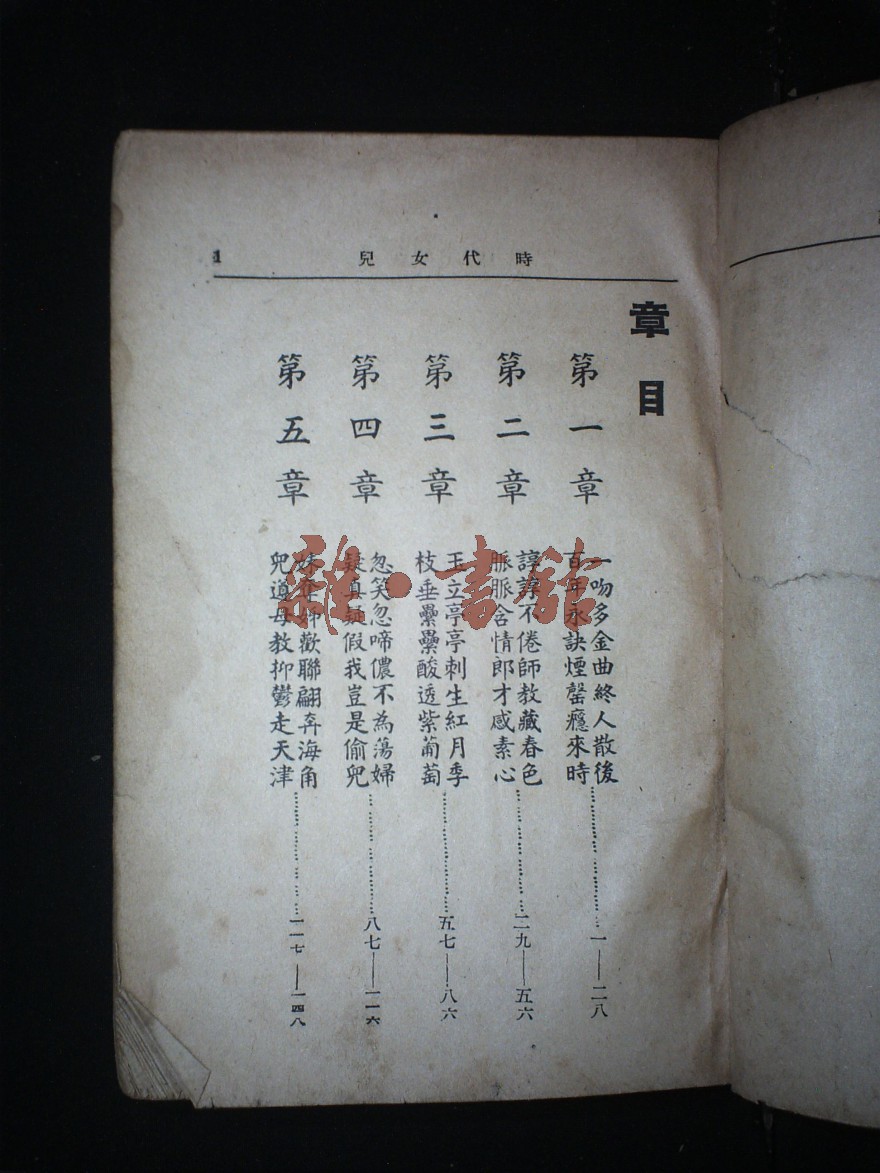 時代女兒
1
章目
第一章
一吻多金曲終人散後
百年永訣煙罄癮來時
一—二八
第二章
諄諄不倦師教藏春色
脈脈含情郎才感素心
二九—五六
第三章
玉立亭亭刺生紅月季
枝垂纍纍酸透紫葡萄
五七—八六
第四章
忽笑忽啼儂不為蕩婦
疑真疑假我豈是偷兒
八七—一一六
第五章
妹奪姊歡聯翩奔海角
兒道母教抑鬱走天津
一一七—一四八
雜·書館